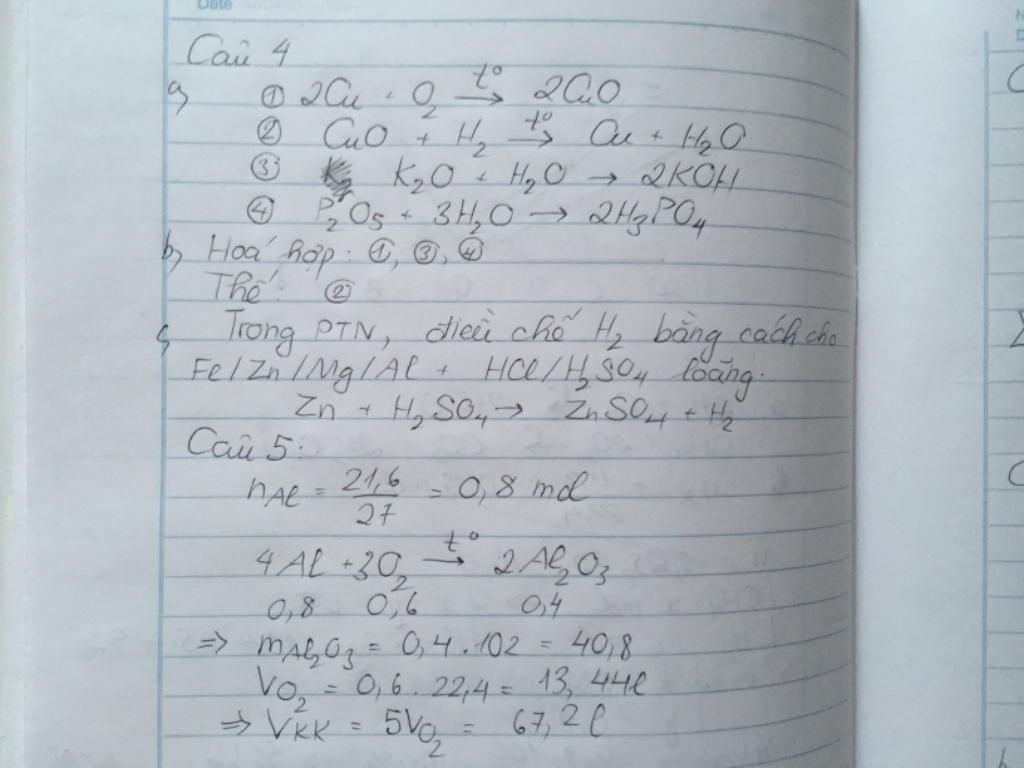 Date
Câu 4
a, ① 2Cu + O₂ –t°→ 2CuO
② CuO + H₂ –t°→ Cu + H₂O
③ K₂O + H₂O → 2KOH
④ P₂O₅ + 3H₂O → 2H₃PO₄
b, Hoá hợp: ①, ③, ④
Thế: ②
c, Trong PTN, điều chế H₂ bằng cách cho
Fe/Zn/Mg/Al + HCl/H₂SO₄ loãng.
Zn + H₂SO₄ → ZnSO₄ + H₂
Câu 5:
nAl = 21,6/27 = 0,8 mol
4Al + 3O₂ –t°→ 2Al₂O₃
0,8 0,6 0,4
⇒ mAl₂O₃ = 0,4 . 102 = 40,8
VO₂ = 0,6 . 22,4 = 13,44l
⇒ VKK = 5VO₂ = 67,2 l